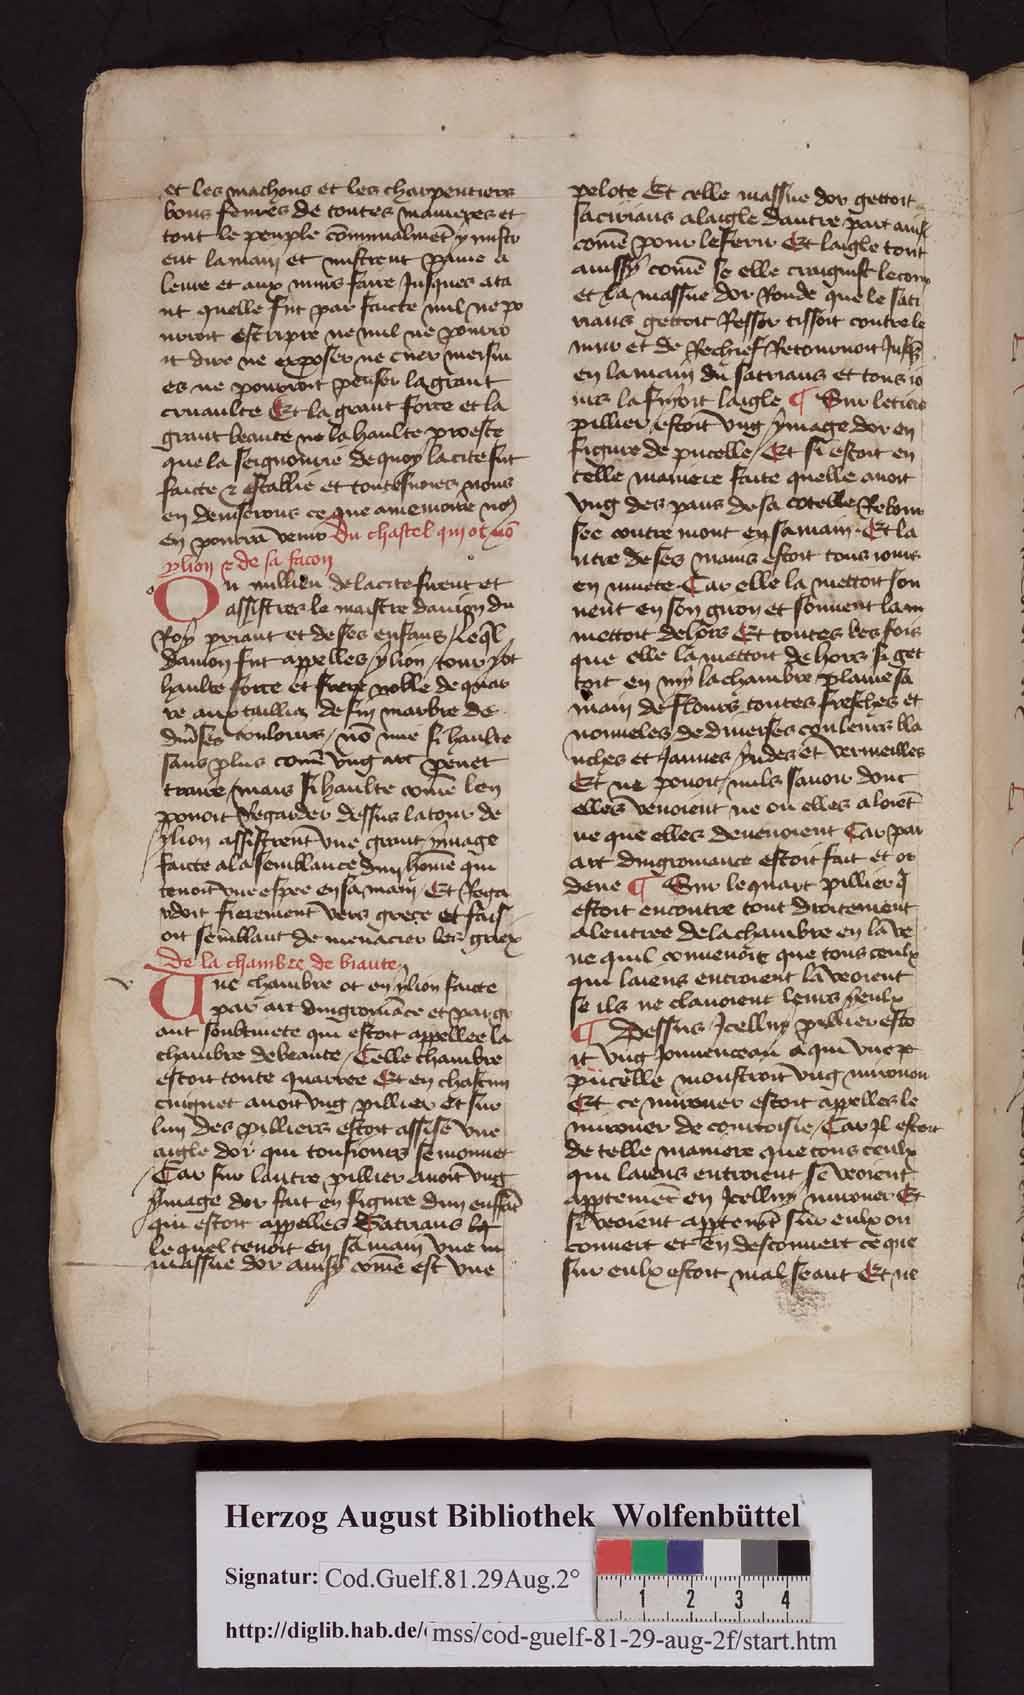 et les machons et les charpentiers
bons fevres de toutes manieres et
tout le peuple cōmunalmēt y mistr
ent la main et mistrent paine a
leuve et aux murs faire Jusques ata
nt quelle fut par faicte nul ne po
urroit escripre ne nul ne pourro
it dire ne exposer ne cuer meism
es ne pourroit penser la grant
cruaulte Et la grant force et la
grant beaute ne la haulte proeste
que la seignourie de quoy la cite fut
faicte & establie et toutesuoies nous
en deviserons ce que amemoire no9
en pourra venir Du chastel qui ot nō
ylion & de sa facon
Ou millieu de la cite furent et
assistrez le maistre danion du
Roy priant et de ses enfans / leql
damion fut appelles / ylion / tour yot
haulte force et freze noble de quar
re aux tailliez de fin marbre de
diuses coulours / nō mie si haulte
sans plus comē vng arc peuet
traire / mais si haulte comē len
pouoit Regarder dessus la tour de
ylion assistrent vne grant ymage
faicte a la semblance dun homē qui
tenoit vne espee en sa main Et Rega
rdoit fierement vers grece et fais
oit semblant de menacier les griex
De la chambre de biaute
Une chambre ot en ylion faicte
par art dingromāce et par gr
ant soubtiuete qui estoit appellee la
chambre de beaute / Celle chambre
estoit toute quarree Et en chascun
cuignet auoit vng pillier et sur
lun des pilliers estoit assise vne
aigle dor qui tousiours se mouuet
Car sur lautre pillier auoit vng
ymage dor fait en figure dun enffāt
qui estoit appelles Satirans lq
le quel tenoit en sa main vne m
massue dor ainsy comē est vne
pelote Et celle massue dor gettoit
satirians a laigle dautre part ainsi
comē pour le ferir Et laigle tout
aussy comē se elle craignist le coup
et la massue dor Ronde que le sati
rians gettoit Ressortissoit contre le
mur et de Rechief Retournoit Jusqz
en la main du satrians et tous io
urs la fuyoit laigle ¶ Sur le tiers
pillier estoit vng ymage dor en
figure de pucelle / Et si estoit en
telle maniere faite quelle auoit
vng des pans de sa cotelle Rebour
see contre mont en sa main Et la
utre de ses mains estoit tous iours
en muete Car elle la mettoit sou
uent en son giron et souuent lam
mettoit dehors Et toutes les fois
que elle la mettoit de hors si get
toit en my la chambre plaine sa
main de flours toutes fresches et
nouueles de diuerses couleurs bla
nches et Jaunes / yndes et vermeilles
Et ne pouoit nuls sauoir dont
elles venoient ne ou elles aloiēt
ne que elles deuenoient Car par
art dingromance estoit fait et or
dene ¶ Sur le quart pillier q̄
estoit encontre tout droitement
a lentree de la chambre en la ve
ne quil conuenoit que tous ceulx
qui laiens entroient la veoient
se ils ne clouoient leurs yeulx
¶ Dessus Jcelluy pillier esto
it vng Jouuenceau a qui vne p
pucelle monstroit vng mirouer
Et ce mirouer estoit appelles le
mirouer de courtoisie / Car Jl estoit
de telle maniere que tous ceulx
qui laiens entroient se veoient
appertemēt en Jcelluy mirouer Et
si veoient apptemēt sur eulx ou
couuert et en descouuert ce que
sur eulx estoit mal seant Et ne
Herzog August Bibliothek Wolfenbüttel
Signatur: Cod.Guelf.81.29Aug.2°
1 2 3 4
http://diglib.hab.de/mss/cod-guelf-81-29-aug-2f/start.htm